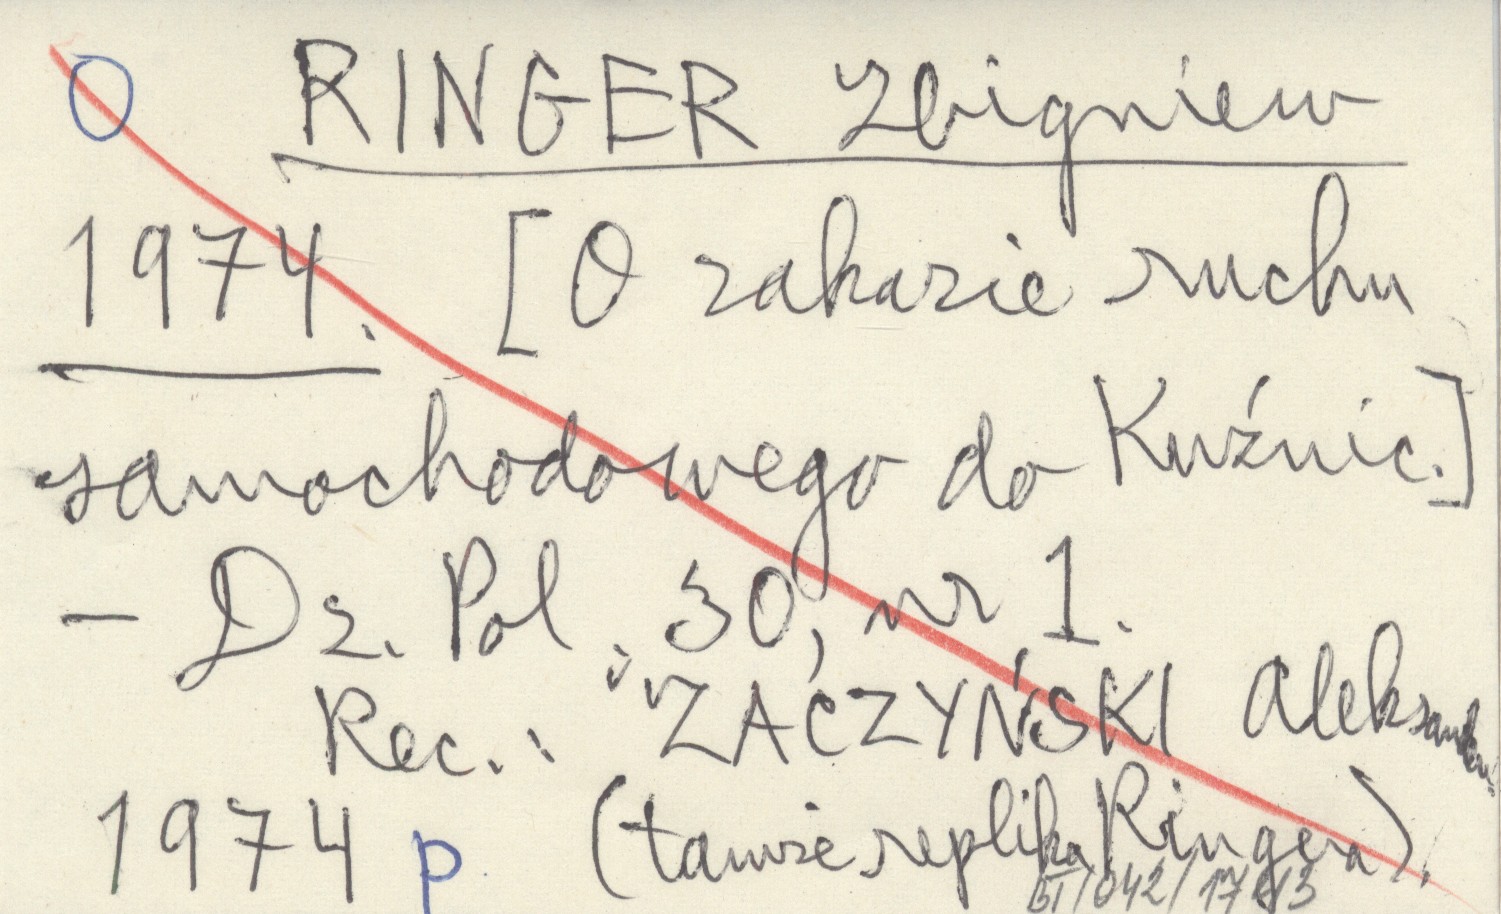 O RINGER Zbigniew
1974. [O zakazie ruchu
samochodowego do Kuźnic.]
- Dz. Pol. 30, nr 1.
Rec.: ZACZYŃSKI Aleksander
1974 p (tamże replika Ringera).
BI/042/17